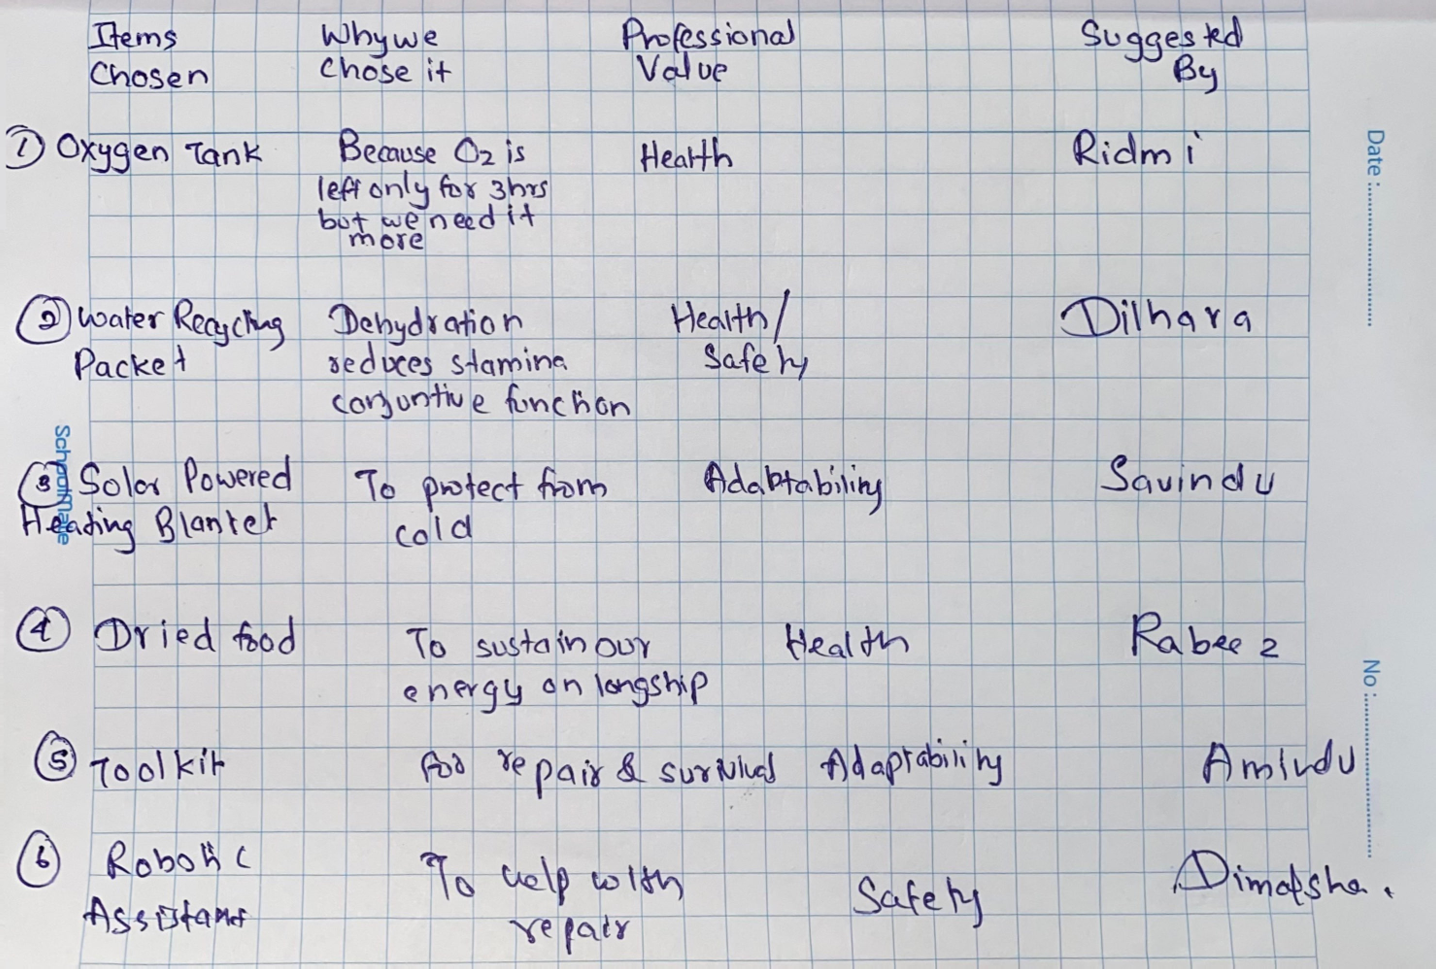 Items Chosen Why we chose it Professional Value Suggested By
① Oxygen Tank Because O2 is left only for 3hrs but we need it more Health Ridmi
② Water Recycling Packet Dehydration reduces stamina conjuntive function Health/ Safety Dilhara
③ Solar Powered Heading Blanket To protect from cold Adabtability Savindu
④ Dried food To sustain our energy on longship Health Rabeez
⑤ Toolkit for repair & survival Adaptability Amindu
⑥ Robotic To help with repair Safety
Date :
No :
Schoolmate